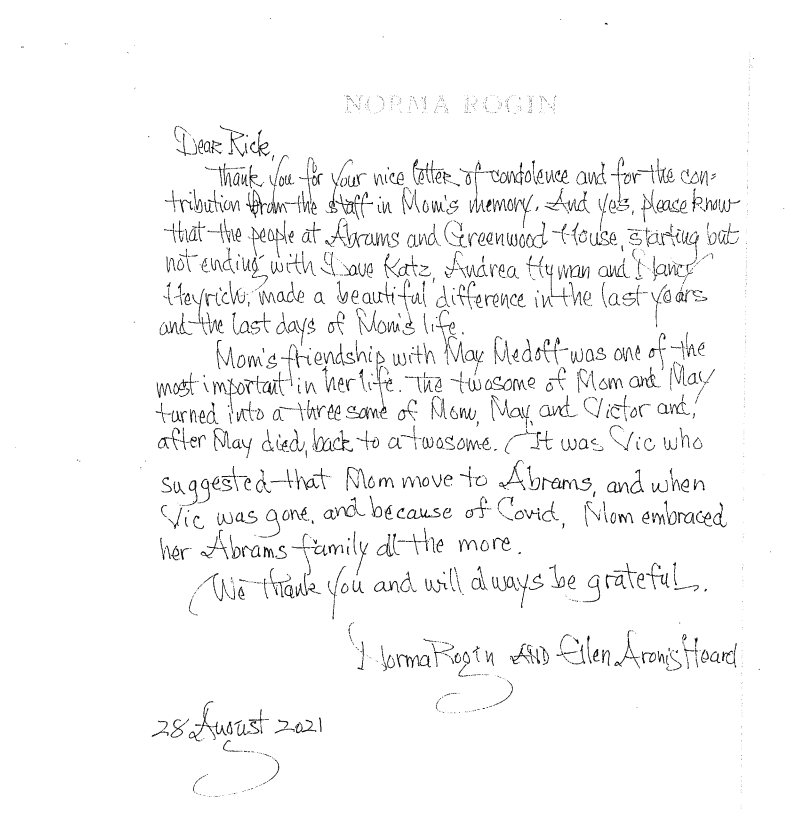 NORMA ROGIN
Dear Rick,
Thank you for your nice letter of condolence and for the con-
tribution from the staff in Mom's memory. And yes, please know
that the people at Abrams and Greenwood House, starting but
not ending with Dave Katz, Andrea Hyman and Nancy
Heyrich, made a beautiful difference in the last years
and the last days of Mom's life.
Mom's friendship with May Medoff was one of the
most important in her life. The twosome of Mom and May
turned into a threesome of Mom, May, and Victor and,
after May died, back to a twosome. It was Vic who
suggested that Mom move to Abrams, and when
Vic was gone, and because of Covid, Mom embraced
her Abrams family all the more.
We thank you and will always be grateful.
Norma Rogin AND Ellen Aronis Heard
28 August 2021